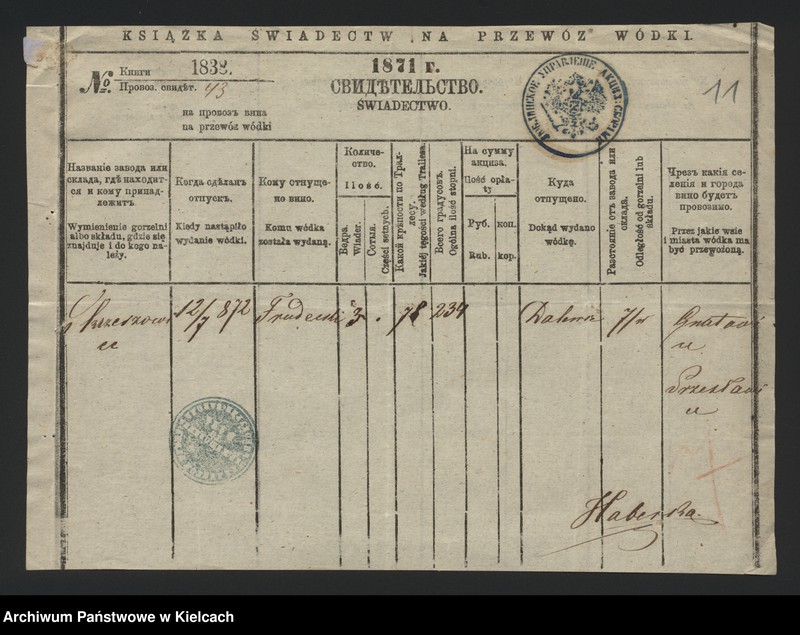 KSIĄŻKA ŚWIADECTW NA PRZEWÓZ WÓDKI.
№ Книги 1838.
Провоз. свидѣт. 43
на провозъ вина
na przewóz wódki
1871 г.
СВИДѢТЕЛЬСТВО.
ŚWIADECTWO.
УПРАВЛЕНІЕ АКЦИЗ.
11
Названіе завода или
склада, гдѣ находит-
ся и кому принад-
лежитъ.
Wymienienie gorzelni
albo składu, gdzie się
znajduje i do kogo na-
leży.
Когда сдѣланъ
отпускъ.
Kiedy nastąpiło
wydanie wódki.
Кому отпуще-
но вино.
Komu wódka
została wydaną.
Количе-
ство.
Ilość.
Ведра.
Wiader.
Сотыя.
Części setnych.
Какой крѣпости по Трал-
лесу.
Jakiéj tęgości według Trallesa.
Всего градусовъ.
Ogólna ilość stopni.
На сумму
акциза.
Ilość opła-
ty
Руб. коп.
Rub. kop.
Куда
отпущено.
Dokąd wydano
wódkę.
Разстояніе отъ завода или
склада.
Odległość od gorzelni lub
składu.
Чрезъ какія се-
ленія и города
вино будетъ
провозимо.
Przez jakie wsie
i miasta wódka ma
być przewożoną.
12/7 872
3
78
234
Haberska
Archiwum Państwowe w Kielcach